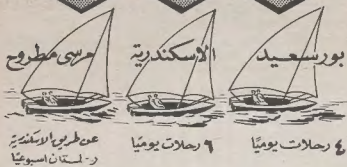 بورسعيد
٤ رحلات يوميًا
الاسكندرية
٩ رحلات يوميًا
مرسى مطروح
عن طريق الاسكندرية
رحلتان اسبوعيًا